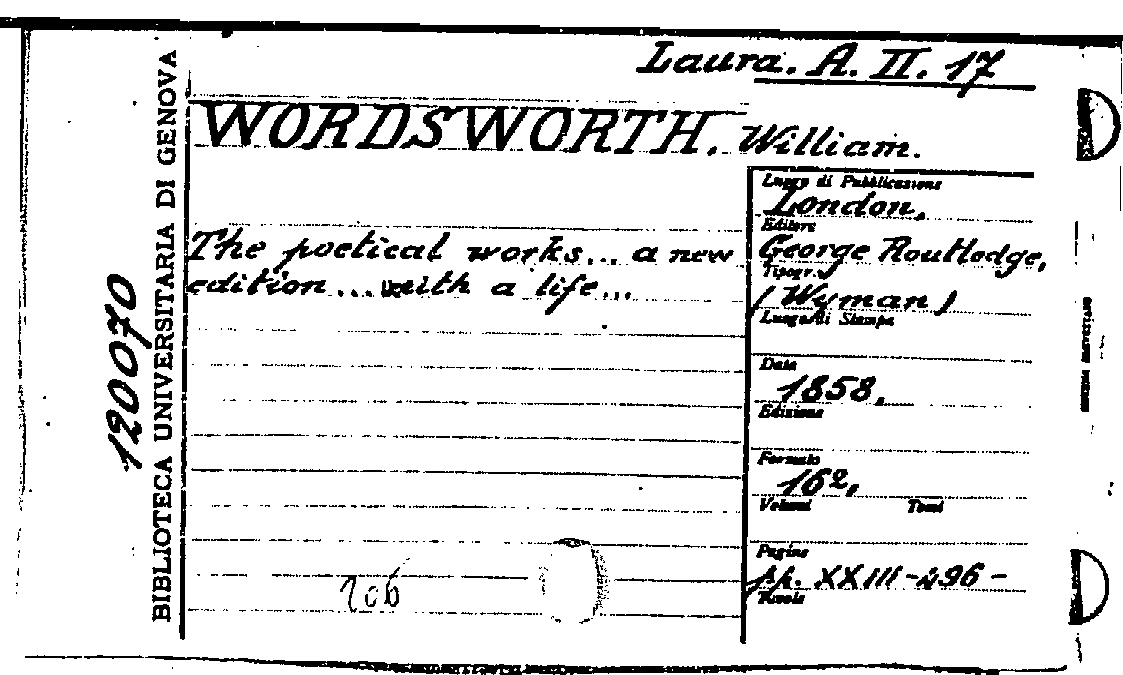 Laura. A. II. 17
WORDSWORTH. William.
The poetical works... a new
edition... with a life...
Luogo di Pubblicazione
London,
Editore
George Routledge,
Tipogr.
(Wyman)
Luogo di Stampa
Data
1858,
Edizione
Formato
16º,
Volumi Tomi
Pagine
pp. XXIII-496-
Tavole
206
120070
BIBLIOTECA UNIVERSITARIA DI GENOVA